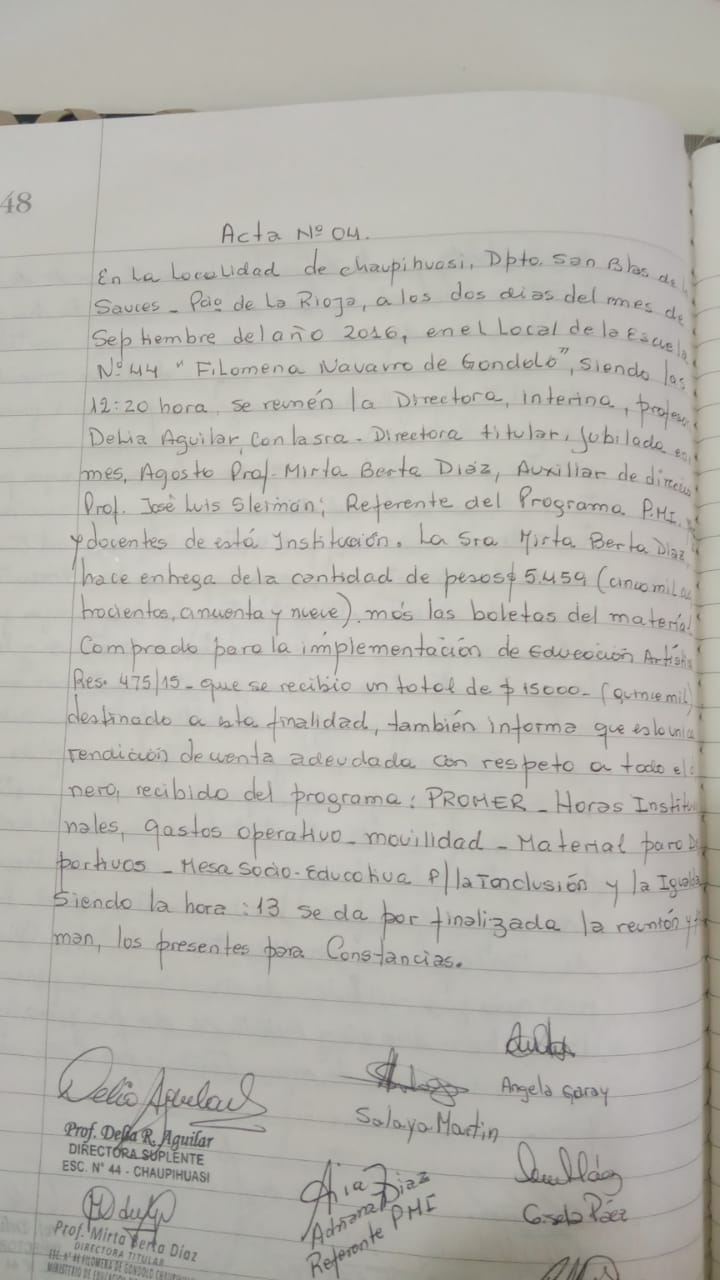 48
Acta Nº 04.
En La Localidad de chaupihuasi, Dpto. San Blas de
Sauces - Pcia de La Rioja, a los dos dias del mes de
Septiembre del año 2016, en el Local de la Escuela
Nº 44 " Filomena Navarro de Gondolo", siendo las
12:20 hora, se reunén la Directora, interina, profesora
Delia Aguilar, con la sra. Directora titular, Jubilada en
mes, Agosto Prof. Mirta Berta Diáz, Auxiliar de direcc
Prof. José Luis Sleiman; Referente del Programa P.M.I.
y docentes de está Institución. La Sra Mirta Berta Diaz
hace entrega de la cantidad de pesos $ 5.459 (cinco mil cua
trocientos, cincuenta y nueve). más las boletas del material
Comprado para la implementación de Educación Artístic
Res. 475/15 - que se recibio un total de $ 15000 - (quince mil)
destinado a esta finalidad, también informa que es la unica
rendición de cuenta adeudada con respeto a todo el di
nero, recibido del programa: PROMER - Horas Institu
nales, gastos operativo - movilidad - Material para De
portivos - Mesa Socio-Educativa p/ la Inclusión y la Igualda
Siendo la hora: 13 se da por finalizada la reunión y fir
man, los presentes para Constancias.
Delia Aguilar
Prof. Delia R. Aguilar
DIRECTORA SUPLENTE
ESC. N° 44 - CHAUPIHUASI
Salaya Martin
Angela Garay
Prof. Mirta Berta Diaz
DIRECTORA TITULAR
Adriana Diaz
Referente PMI
Gisela Páez